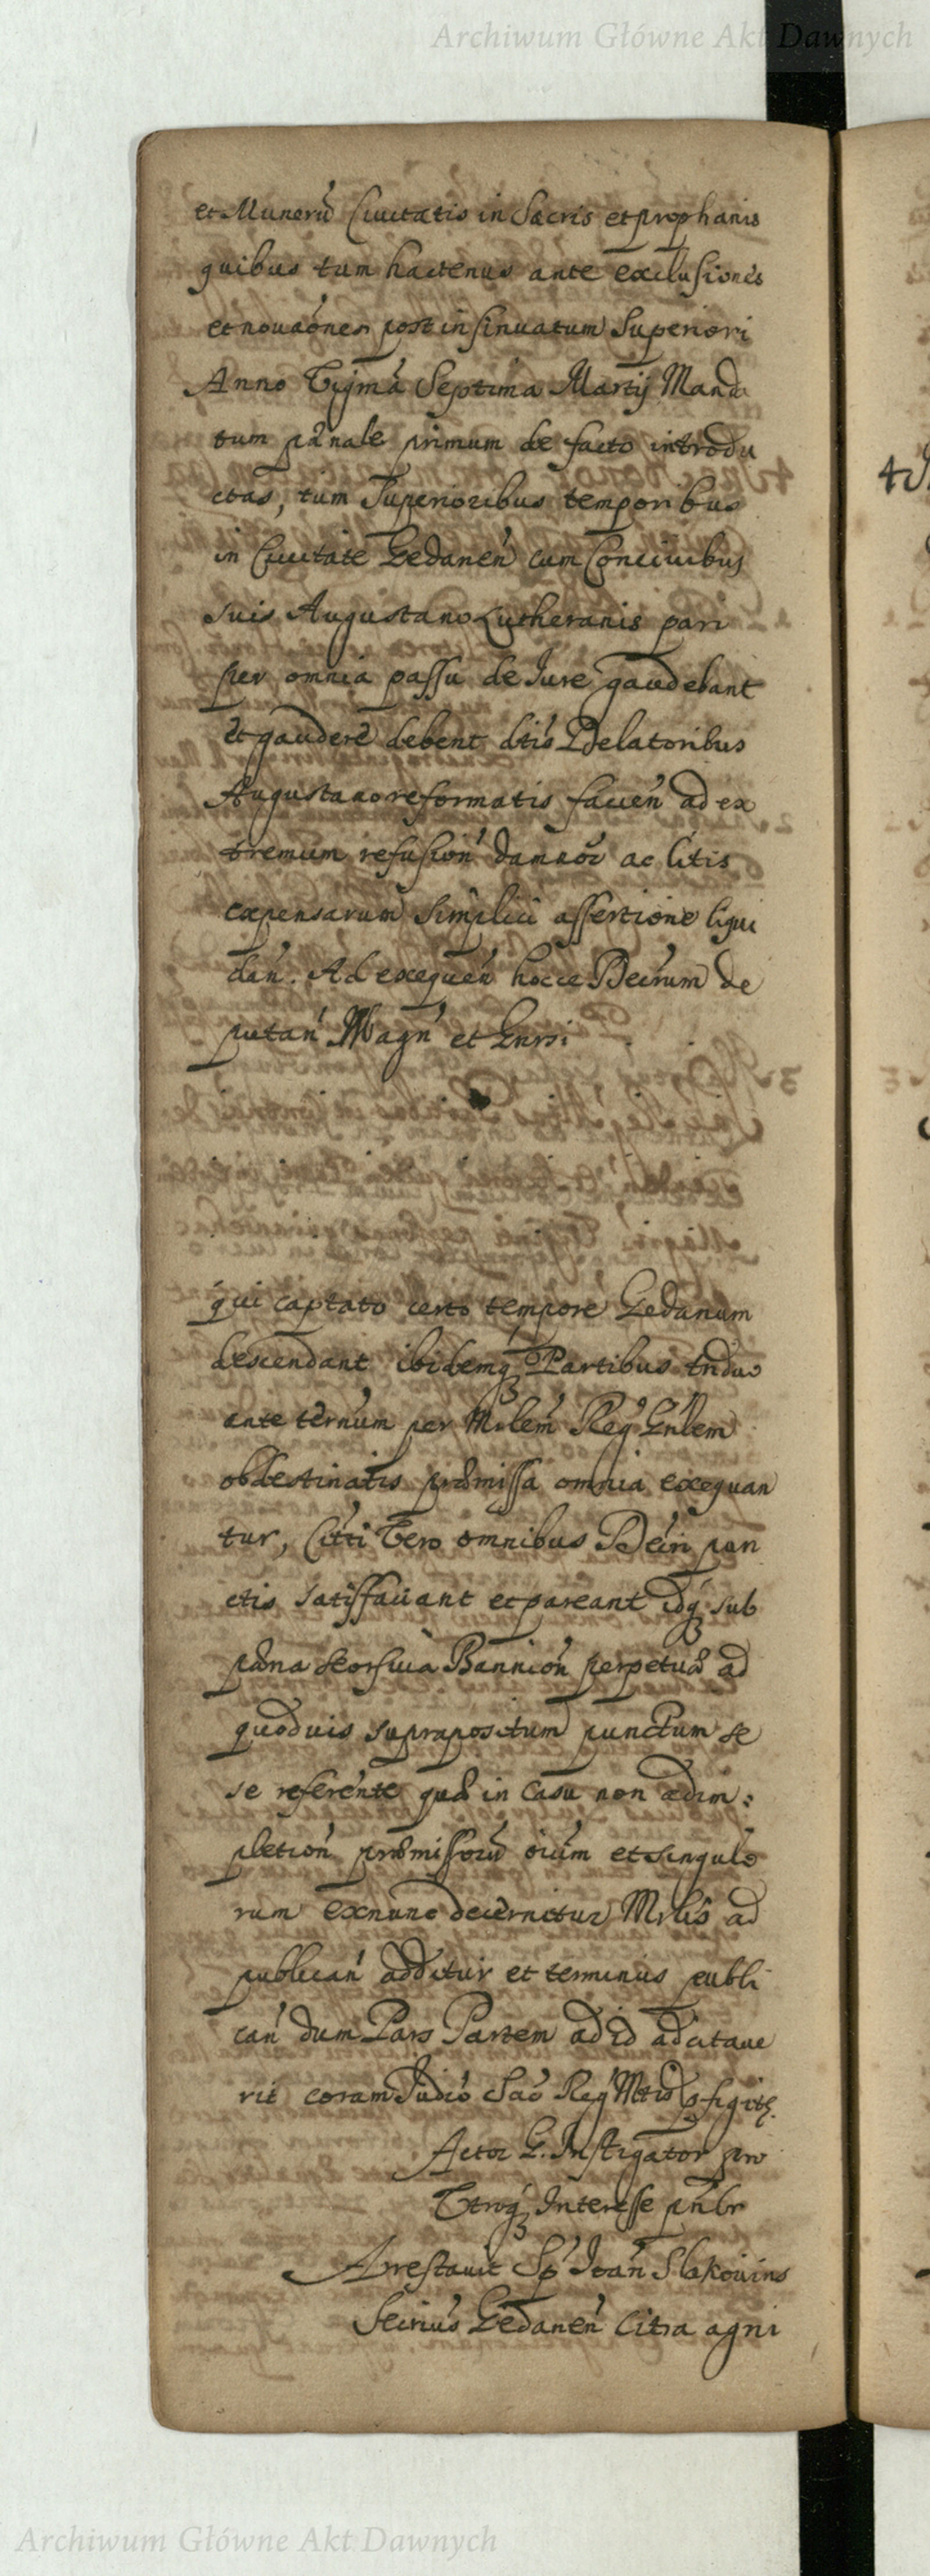 Archiwum Główne Akt Dawnych
et Munerū Civitatis in Sacris et prophanis
quibus tum hactenus ante exclusiones
et novaōnes post insinuatum Superiori
Anno Vigmā Septima Martij Manda
tum pænale primum de facto introdu
ctas, tum Superioribus temporibus
in Civitate Gedanen̄ cum Concivibus
suis Augustano Lutheranis pari
per omnia passu de Jure gaudebant
et gaudere debent dtis Delatoribus
Augustano reformatis faven̄ ad ex
tremum refusion̄ damnor̄ ac litis
expensarum simplici assertione liqui
dan̄. Ad exequen̄ hocce Decrum de
putan̄ Magn̄ et Gnrsi
qui captato certo tempore Gedanum
descendant ibidemq₃ Partibus triduo
ante ternum per Mrlem Reg Gnlem
obdestinatis præmissa omnia exequan
tur, Citti Vero omnibus Decri pun
ctis satisfaciant et pareant idq₃ sub
pæna Bannion̄ perpetuæ ad
quodvis suprapositum punctum se
se referente quæ in casu non adim:
pletion̄ præmissorū oium et singulo
rum exnunc decernitur Mrlis ad
publican̄ additur et terminus publi
can̄ dum Pars Partem ad id adcitave
rit coram Judio Sac Reg Mtis
Actor G. Instigator pro
Utroq₃ Interesse pnbr
Arrestavit Sp Joan̄
Secrius Gedanen̄ citra agni
Archiwum Główne Akt Dawnych